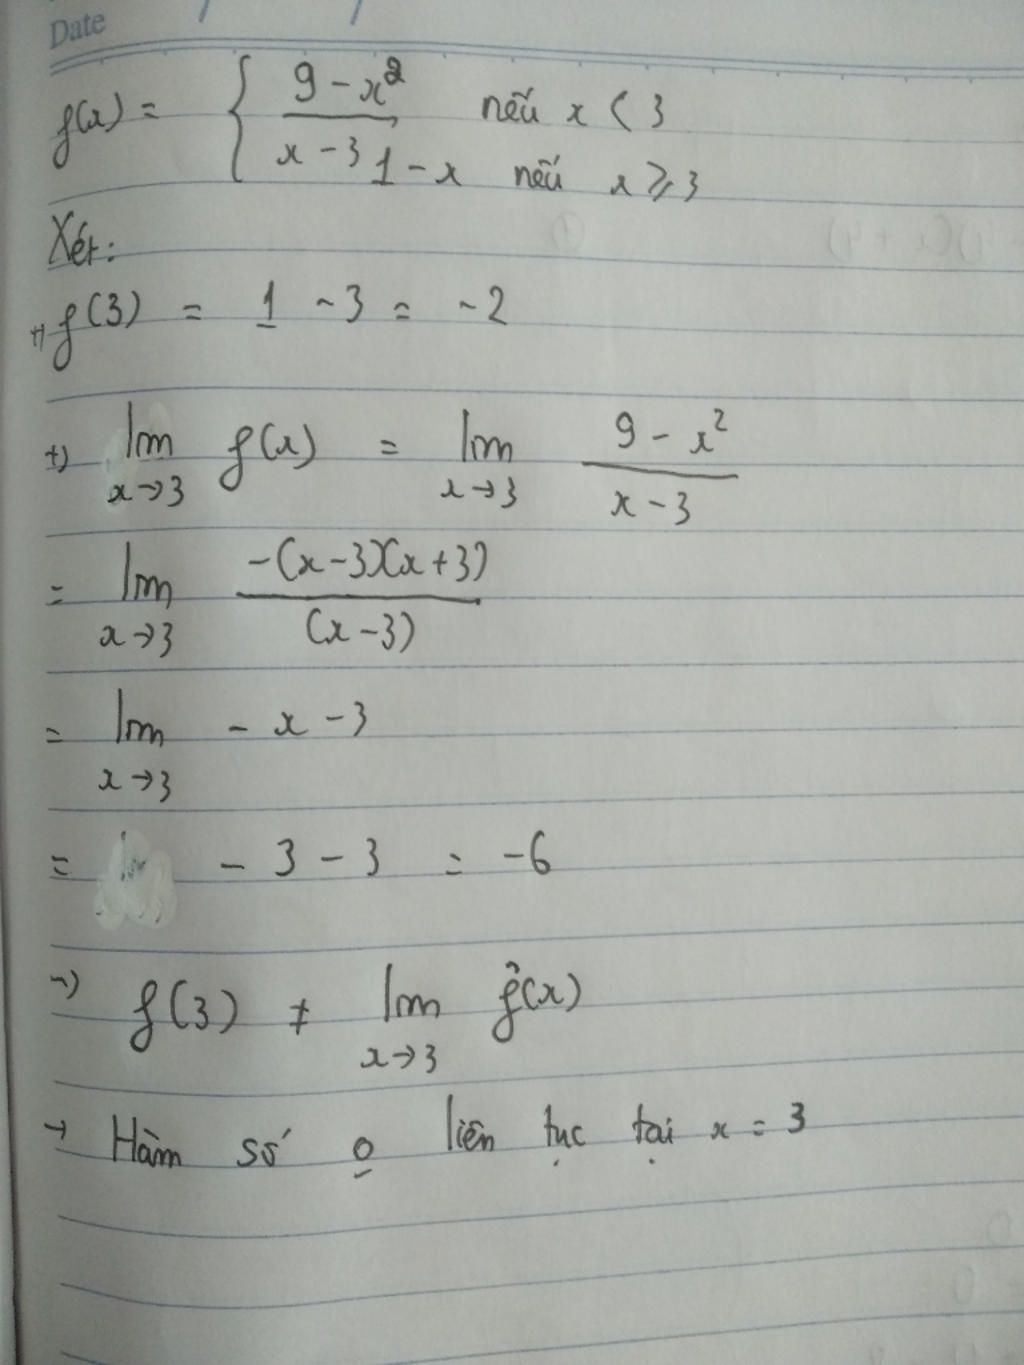 Date
f(x) = { (9 - x²)/(x - 3) nếu x < 3
1 - x nếu x ⩾ 3
Xét:
+) f(3) = 1 - 3 = -2
+) lim x→3 f(x) = lim x→3 (9 - x²)/(x - 3)
= lim x→3 -(x-3)(x+3)/(x-3)
= lim x→3 - x - 3
= - 3 - 3 = -6
→) f(3) ≠ lim x→3 f(x)
→ Hàm số o liên tục tại x = 3